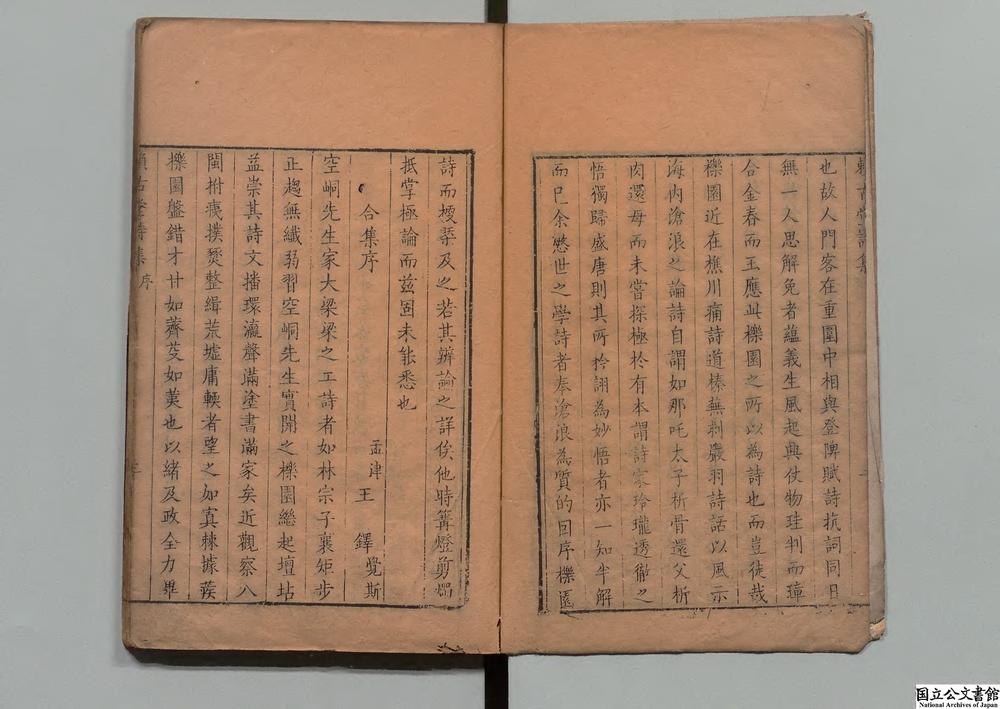 賴古堂詩集
也故人門客在重圍中相與登陴賦詩抗詞同日
無一人思解免者蘊義生風起興仗物珪判而璋
合金春而玉應此櫟園之所以為詩也而豈徒哉
櫟園近在樵川痛詩道榛蕪刻嚴羽詩話以風示
海內滄浪之論詩自謂如那吒太子析骨還父析
肉還母而未嘗探極於有本謂詩家玲瓏透徹之
悟獨歸盛唐則其所矜詡為妙悟者亦一知半解
而已余懲世之學詩者奉滄浪為質的因序櫟園
詩而及之若其辨論之詳俟他時篝燈剪燭
抵掌極論而茲固未能悉也
合集序
孟津王鐸覺斯
空峒先生家大梁梁之工詩者如林宗子襄矩步
正趨無纖弱習空峒先生實開之櫟園繼起壇坫
益崇其詩文播環瀛聲滿塗書滿家矣近觀察八
閩拊痍撲燹整緝荒墟庸輭者望之如寘棘據蒺
櫟園盤錯才甘如薺芟如荑也以緒及政全力畢
賴古堂詩集
序
国立公文書館
National Archives of Japan